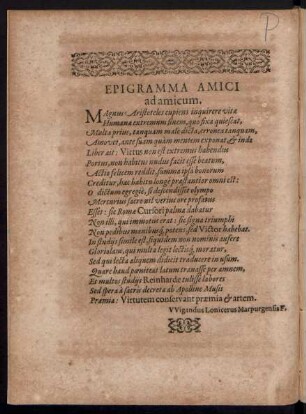 P
EPIGRAMMA AMICI
ad amicum.
MAgnus Aristoteles cupiens inquirere vitæ
Humanæ extremum finem, quo fixa quiescat,
Multa prius, tanquam male dicta, errore tanquam,
Amovet, ante suam quàm mentem exponat, & inde
Liber ait: Virtus non est extremus habendus
Portus, non habitus nudus facit esse beatum,
Actio felicem reddit, summa ipsa bonorum
Creditur, hac habitu longè præstantior omni est:
O dictum egregiè, si defendisset olympo
Mercurius sacro aut verius ore profatus
Esset: sic Romæ Cursori palma dabatur
Non illi, qui immotus erat: sic signa triumphi
Non pedibus manibusq́ potens, sed Victor habebat.
In studiis simile est, siquidem non nominis aufert
Gloriolam, qui multa legit lectisq́ moratur,
Sed qui lecta aliquem didicit traducere in usum.
Quare haud pœniteat latum tranasse per amnem,
Et multos studiis Reinharde tulisse labores
Sed spera à sacris decreta ab Apolline Musis
Præmia: Virtutem conservant præmia & artem.
VVigandus Lonicerus Marpurgensis F.